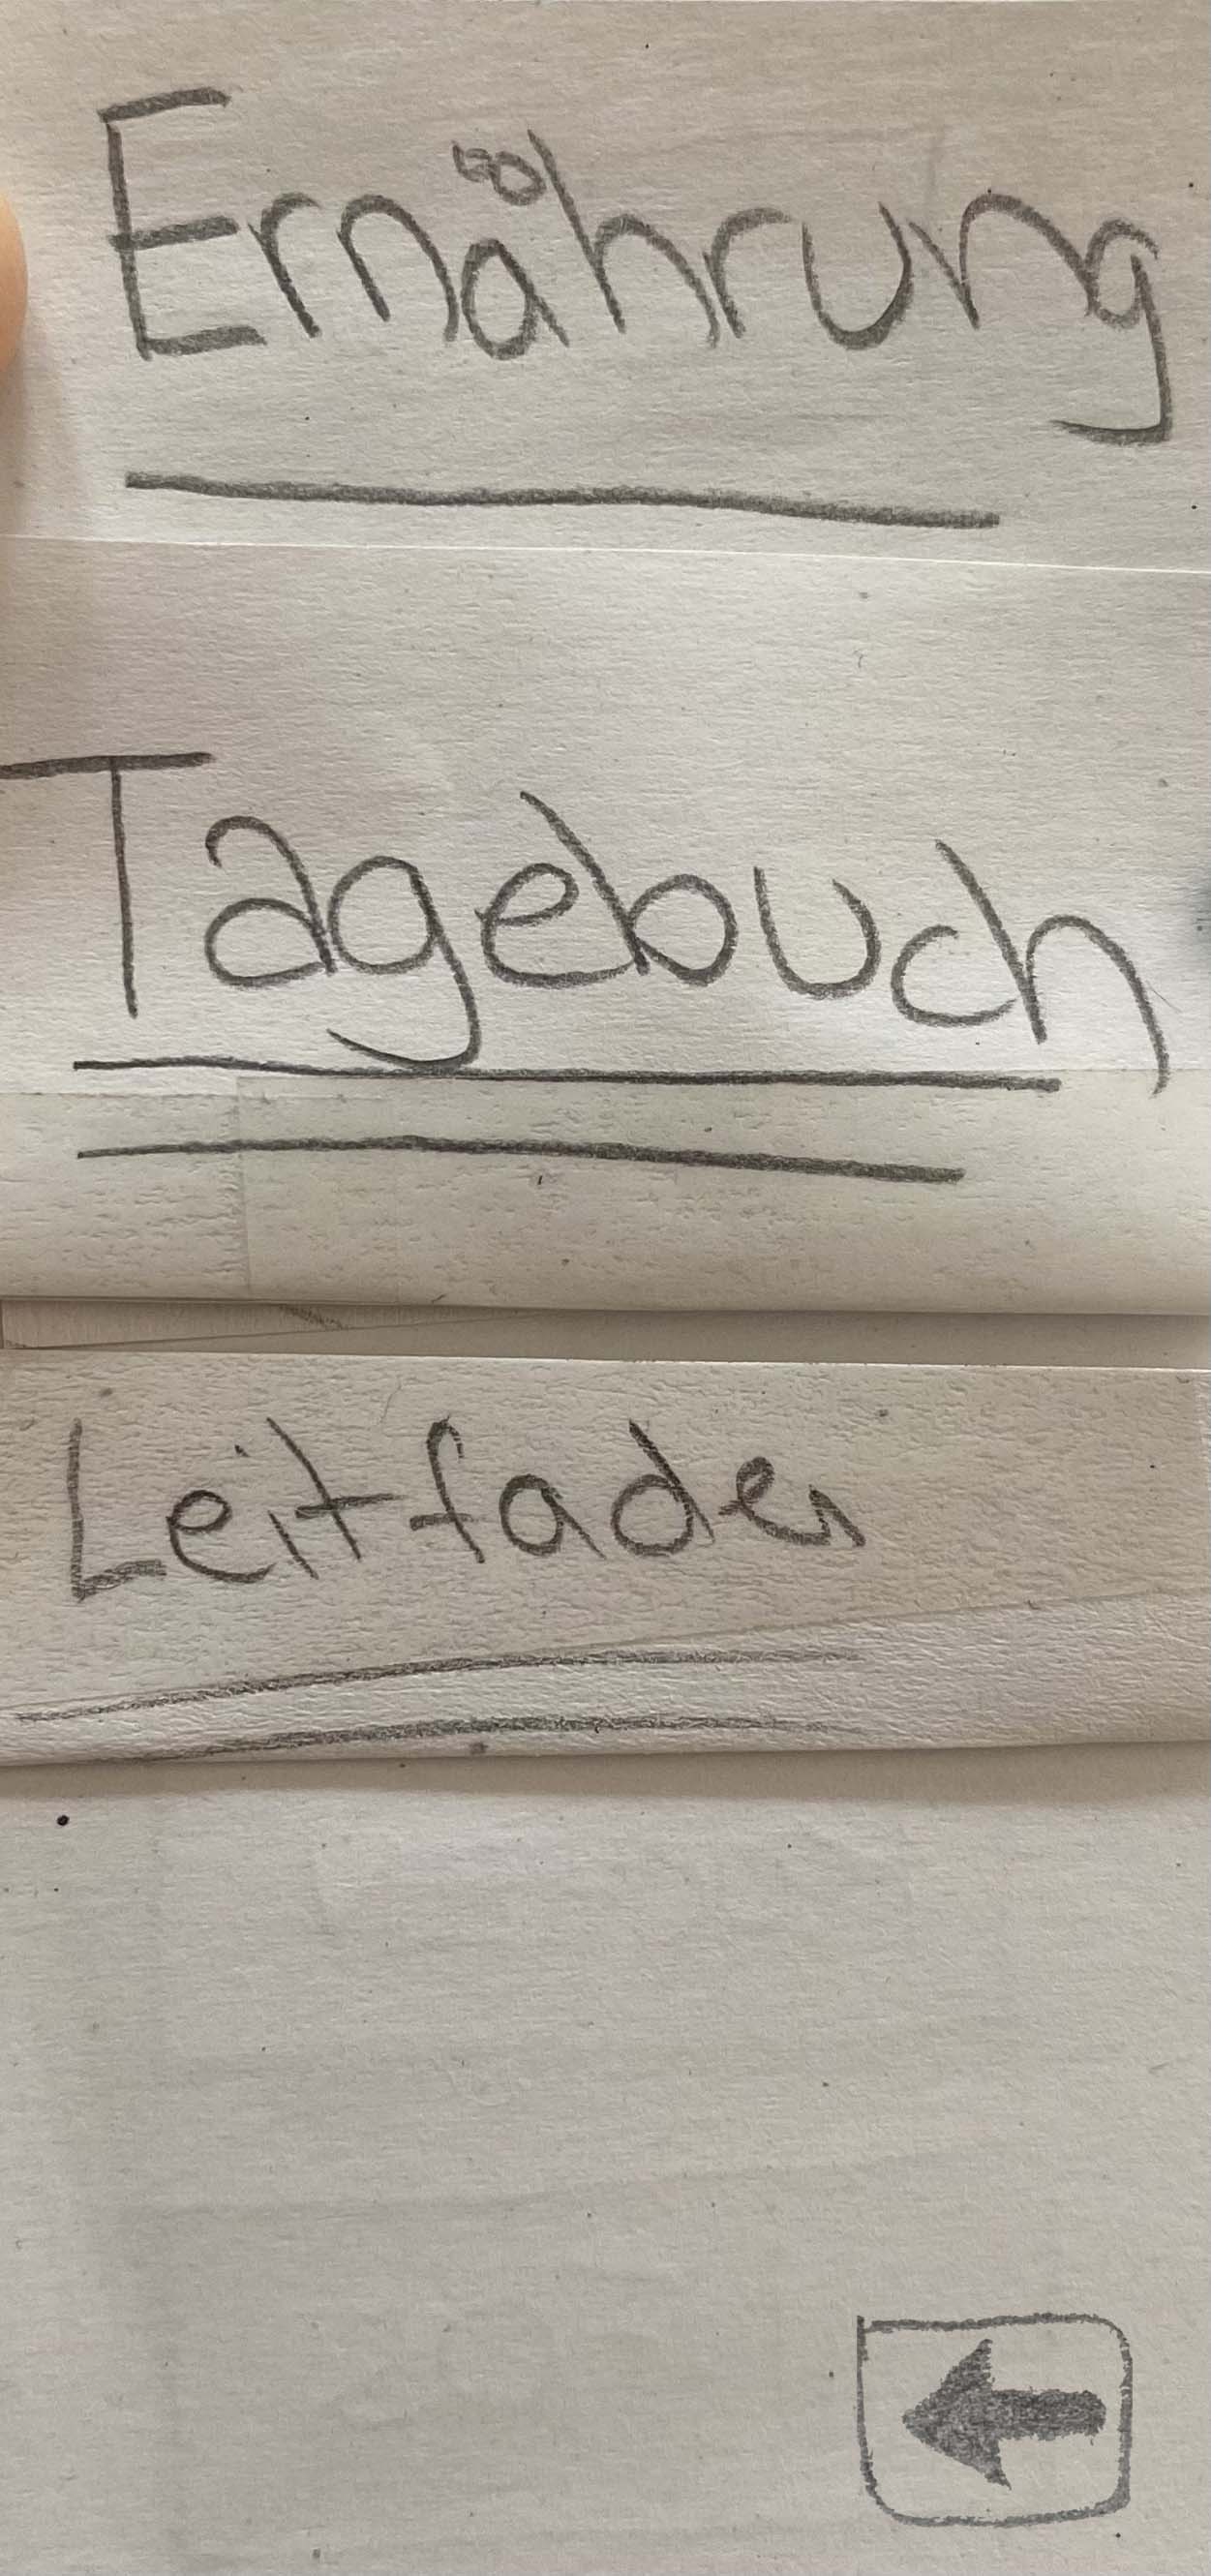 Ernährung
Tagebuch
Leitfaden